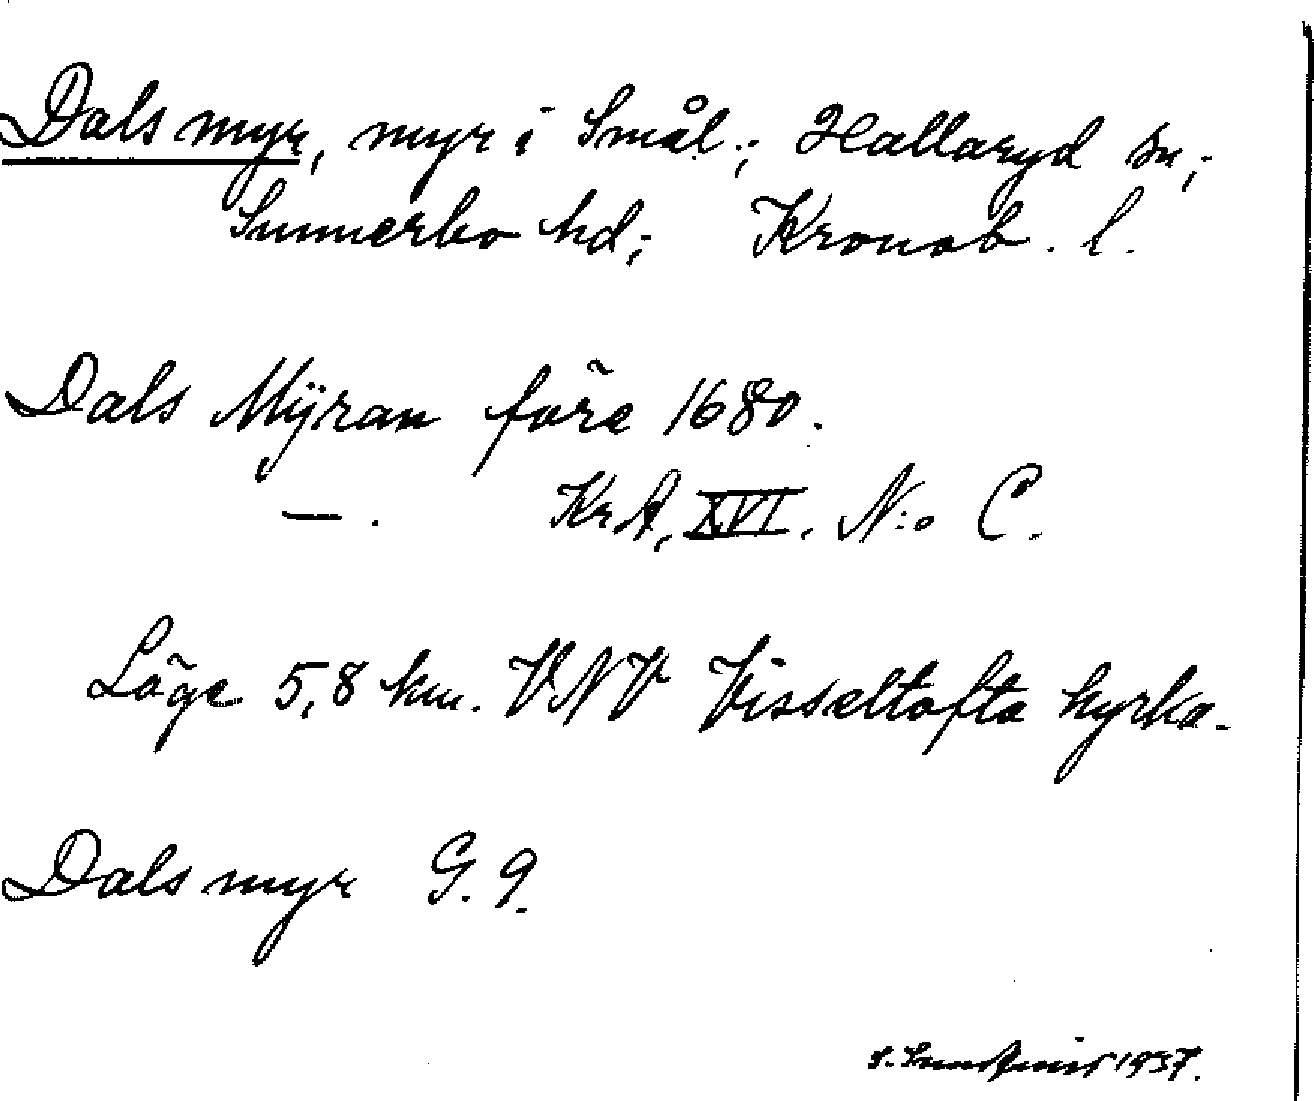 Dals myr, myr i Smål.; Hallaryd sn,;
Sunnerbo hd,; Kronob. l.
Dals Mÿran före 1680.
—. KrA, XVI. N:o C.
Läge 5,8 km. VNV Visseltofta kyrka.
Dals myr G. 9.
S. Sundqvist 1937.